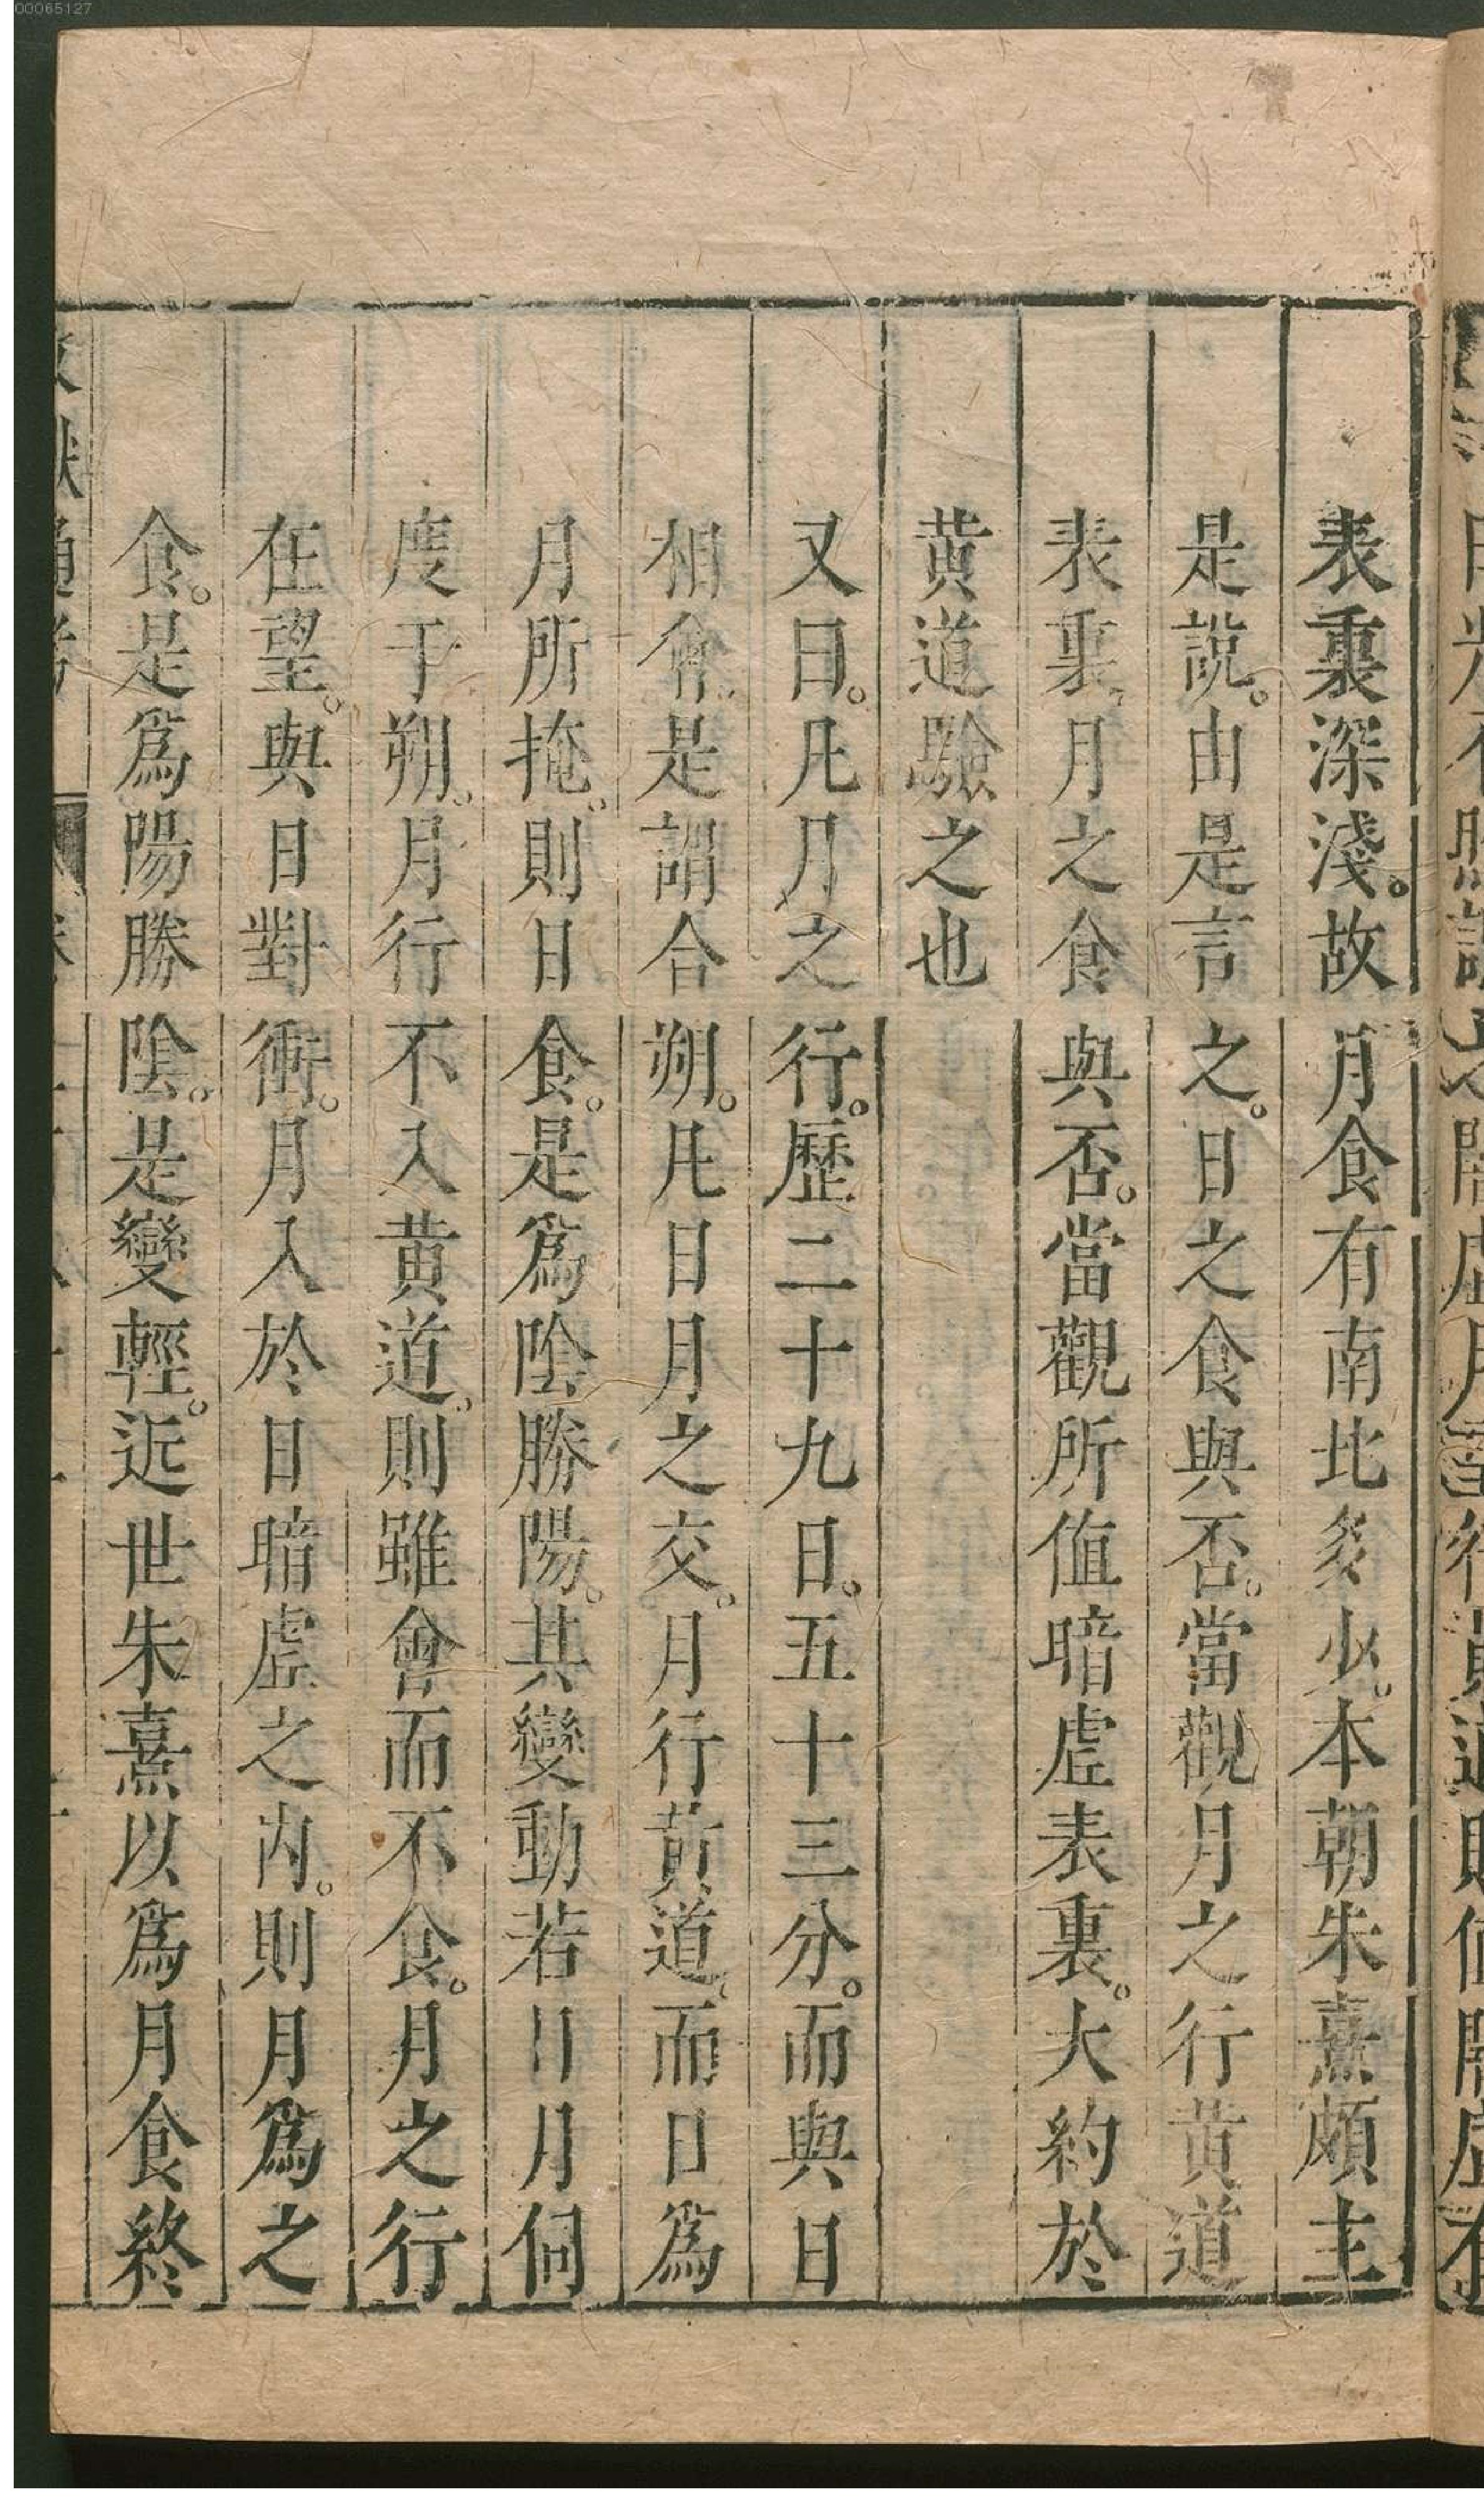 00065127
表裏深淺。故月食有南北多少。本朝朱熹頗主
是說。由是言之。日之食與否。當觀月之行黄道
表裏。月之食與否。當觀所值暗虛表裏。大約於
黄道驗之也
又曰。凡月之行。歷二十九日。五十三分。而與日
相會。是謂合朔。凡日月之交。月行黄道。而日為
月所掩。則日食。是為陰勝陽。其變動若日月同
度于朔。月行不入黄道。則雖會而不食。月之行
在望。與日對衝。月入於日暗虛之内。則月為之
食。是為陽勝陰。是變輕。近世朱熹以為月食終